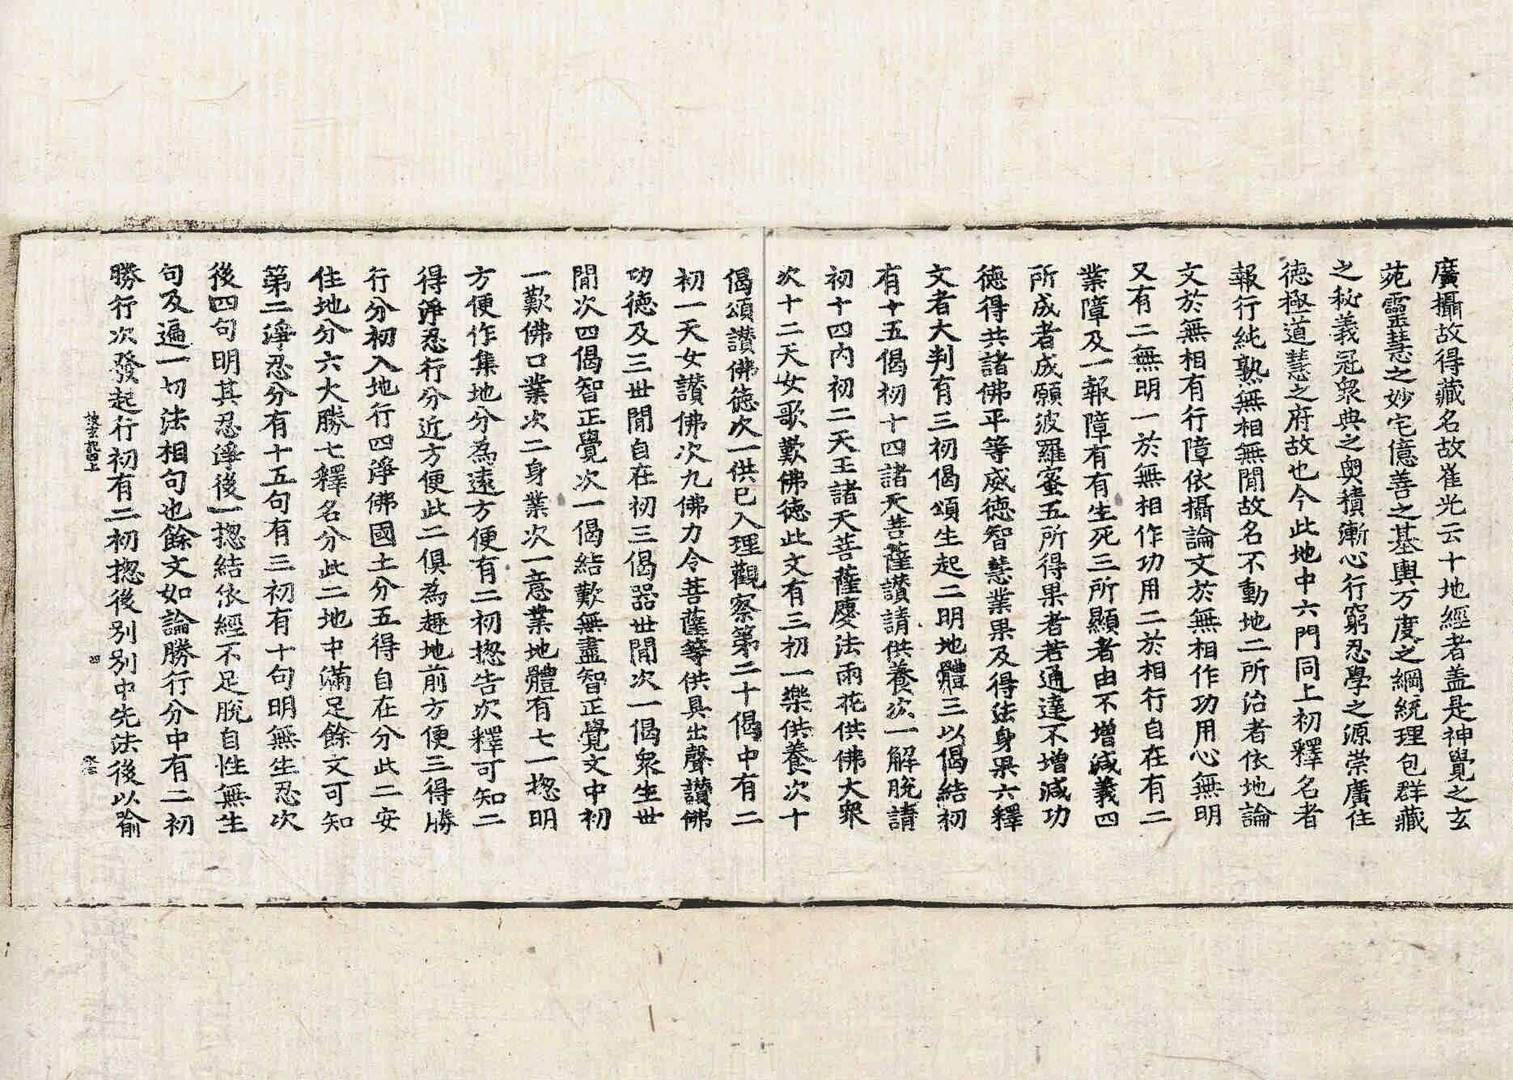 廣攝故得藏名故崔光云十地經者盖是神覺之玄
苑靈慧之妙宅億善之基輿万度之綱統理包群藏
之秘義冠衆典之奥積漸心行窮忍學之源崇廣住
德極道慧之府故也今此地中六門同上初釋名者
報行純熟無相無間故名不動地二所治者依地論
文於無相有行障依攝論文於無相作功用心無明
又有二無明一於無相作功用二於相行自在有二
業障及一報障有有生死三所顯者由不增減義四
所成者成願波羅蜜五所得果者若通達不增減功
德得共諸佛平等威德智慧業果及得法身果六釋
文者大判有三初偈頌生起二明地體三以偈結初
有十五偈初十四諸天菩薩讚請供養次一解脫請
初十四内初二天王諸天菩薩慶法雨花供佛大衆
次十二天女歌歎佛德此文有三初一樂供養次十
偈頌讚佛德次一供已入理觀察第二十偈中有二
初一天女讚佛次九佛力令菩薩等供具出聲讚佛
功德及三世間自在初三偈器世間次一偈衆生世
間次四偈智正覺次一偈結歎無盡智正覺文中初
一歎佛口業次二身業次一意業地體有七一揔明
方便作集地分為遠方便有二初揔告次釋可知二
得淨忍行分近方便此二俱為趣地前方便三得勝
行分初入地行四淨佛國土分五得自在分此二安
住地分六大勝七釋名分此二地中滿足餘文可知
第二淨忍分有十五句有三初有十句明無生忍次
後四句明其忍淨後一揔結依經不足脫自性無生
句及遍一切法相句也餘文如論勝行分中有二初
勝行次發起行初有二初揔後別別中先法後以喻
四